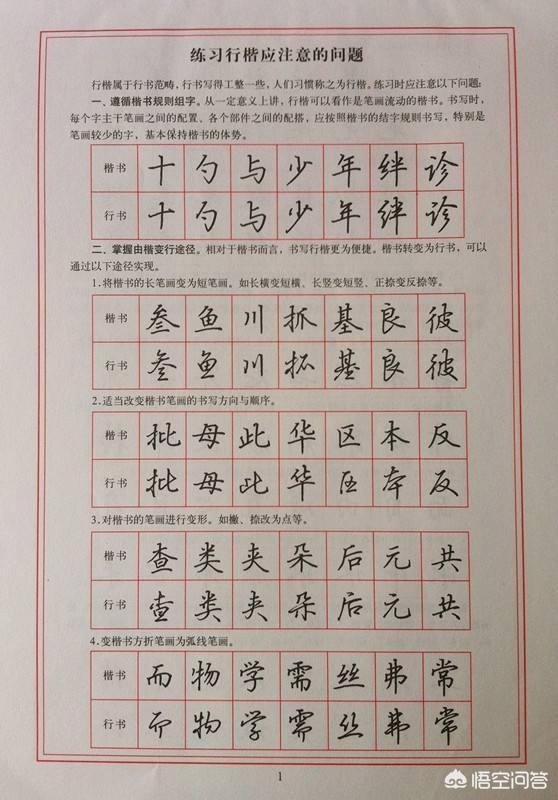 练习行楷应注意的问题
行楷属于行书范畴，行书写得工整一些，人们习惯称之为行楷。练习时应注意以下问题：
一、遵循楷书规则组字。从一定意义上讲，行楷可以看作是笔画流动的楷书。书写时，
每个字主干笔画之间的配置、各个部件之间的配搭，应按照楷书的结字规则书写，特别是
笔画较少的字，基本保持楷书的体势。
楷书 十 勺 与 少 年 绊 诊
行书 十 勺 与 少 年 绊 诊
二、掌握由楷变行途径。相对于楷书而言，书写行楷更为便捷。楷书转变为行书，可以
通过以下途径实现。
1.将楷书的长笔画变为短笔画。如长横变短横、长竖变短竖、正捺变反捺等。
楷书 叁 鱼 川 抓 基 良 彼
行书 叁 鱼 川 拓 基 良 彼
2.适当改变楷书笔画的书写方向与顺序。
楷书 批 母 此 华 区 本 反
行书 批 母 此 华 区 本 反
3.对楷书的笔画进行变形。如撇、捺改为点等。
楷书 查 类 夹 朵 后 元 共
行书 查 类 夹 朵 后 元 共
4.变楷书方折笔画为弧线笔画。
楷书 而 物 学 需 丝 弗 常
行书 而 物 学 需 丝 弗 常
1
悟空问答